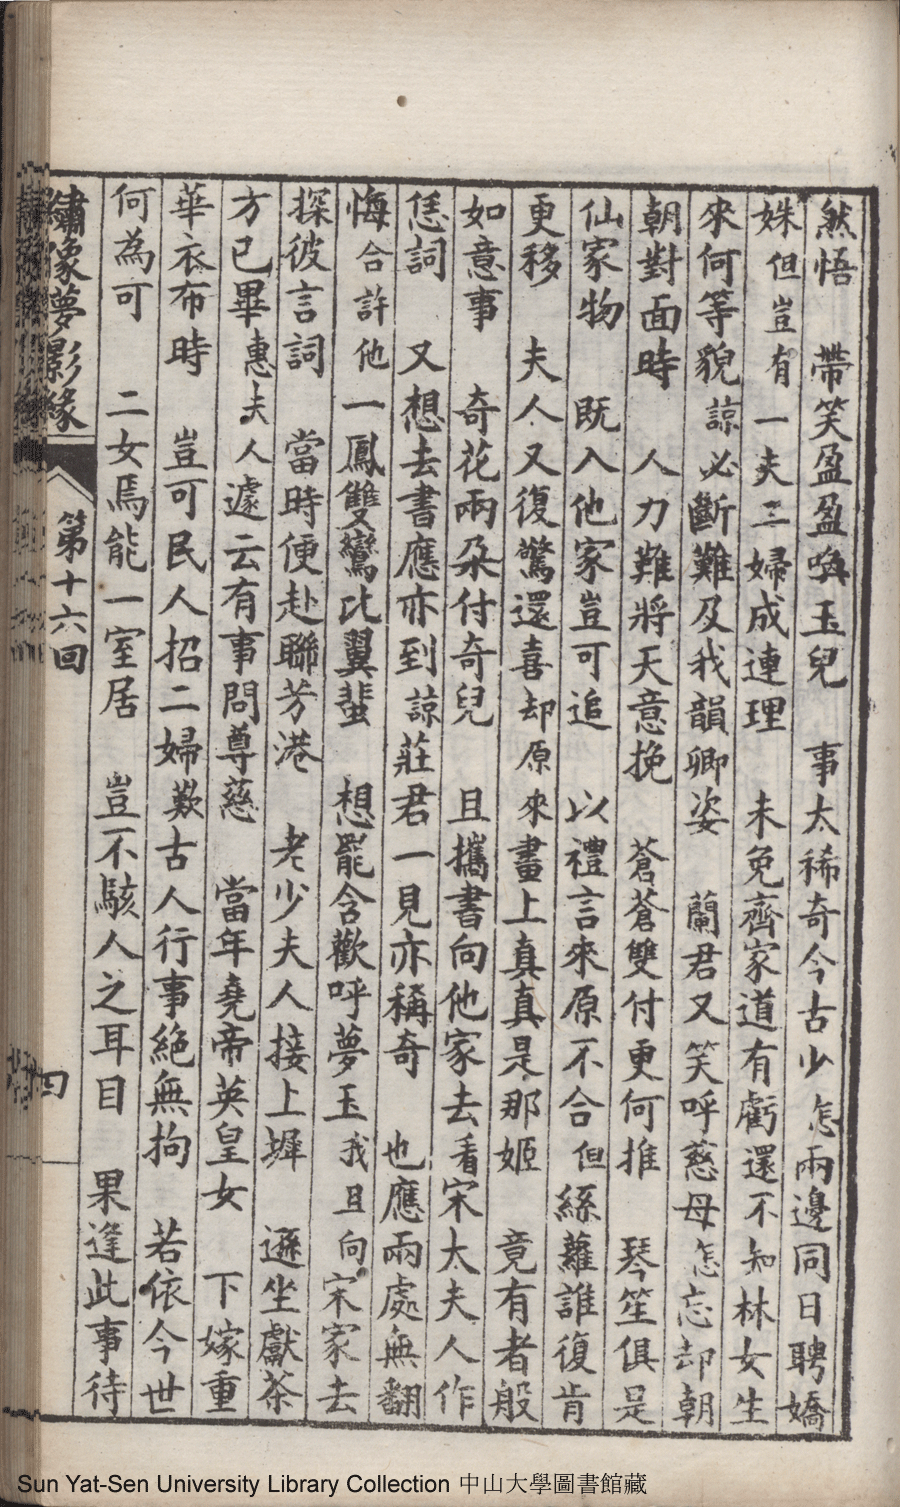 然悟　帶笑盈盈喚玉兒　事太稀奇今古少　怎兩邊同日聘嬌
姝　但豈有一夫三婦成連理　未免齊家道有虧　還不知林女生
來何等貌　諒必斷難及我韻卿姿　蘭君又笑呼慈母　怎忘却朝
朝對面時　人力難將天意挽　蒼蒼雙付更何推　琴笙俱是
仙家物　既入他家豈可追　以禮言來原不合　但絲蘿誰復肯
更移　夫人又復驚還喜　却原來畫上真真是那姬　竟有者般
如意事　奇花兩朶付奇兒　且攜書向他家去　看宋太夫人作
恁詞　又想去書應亦到　諒莊君一見亦稱奇　也應兩處無翻
悔　合許他一鳳雙鸞比翼蜚　想罷含歡呼夢玉　我且向宋家去
探彼言詞　當時便赴聯芳港　老少夫人接上墀　遜坐獻茶
方已畢　惠夫人遽云有事問尊慈　當年堯帝英皇女　下嫁重
華衣布時　豈可民人招二婦　歎古人行事絕無拘　若依今世
何為可　二女焉能一室居　豈不駭人之耳目　果逢此事待
繡像夢影緣　第十六回　四
Sun Yat-Sen University Library Collection 中山大學圖書館藏